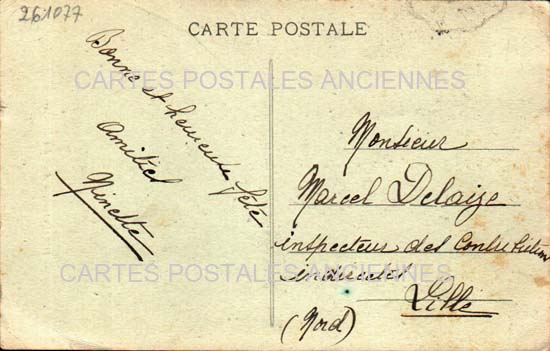 261077
CARTE POSTALE
CARTES POSTALES ANCIENNES
Bonne et heureuse fête
Amitiés
Ninette
Monsieur
Marcel Delaize
inspecteur des Contribution
indirectes
Lille
(Nord)
CARTES POSTALES ANCIENNES